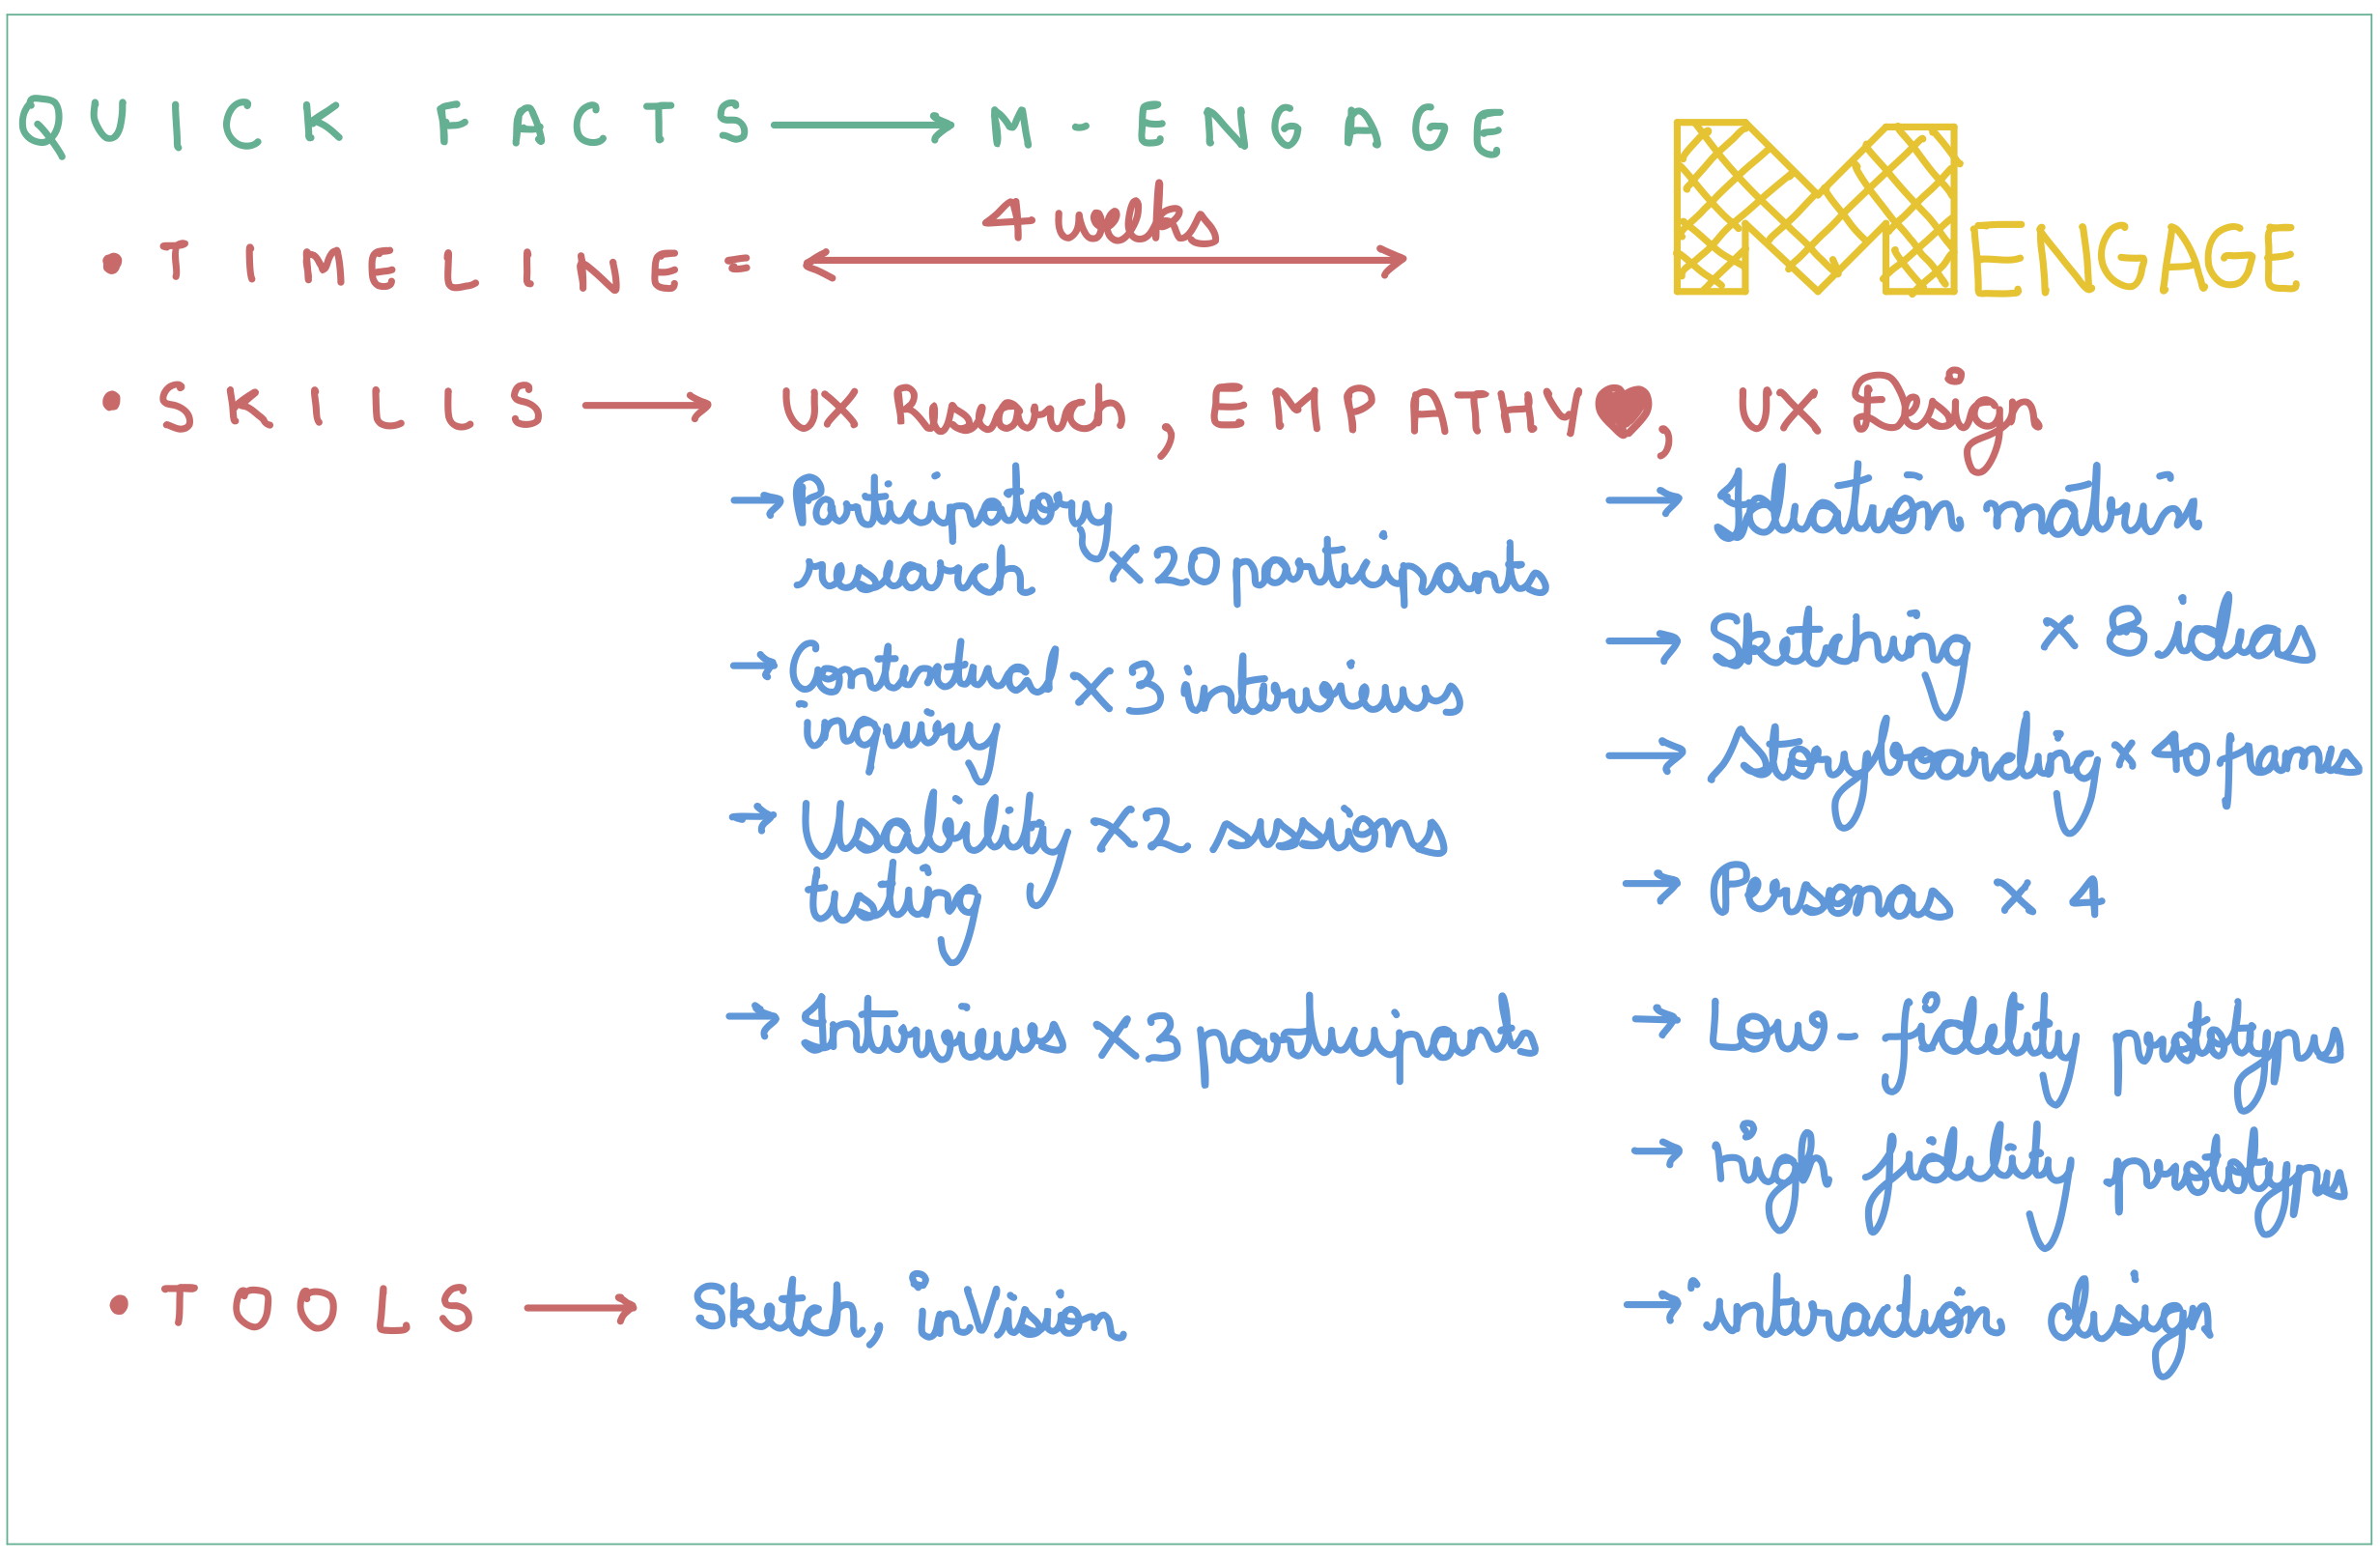 QUICK FACTS → M-ENGAGE
M ENGAGE
4 weeks
• TIMELINE =
• SKILLS → UX Research, EMPATHY♥, UX Design
→ Participatory
research x20 participants
→ Contextual x3 interviews
inquiry
→ Usability x2 sessions
testing
→ Interviews x3 participants
→ Ideation matrix
→ Sketching x 8 ideas
→ storyboarding x 40 frames
→ Personas x 4
→ Low-fidelity prototypes
→ high fidelity prototypes
→ interaction design
• TOOLS → Sketch, inVision